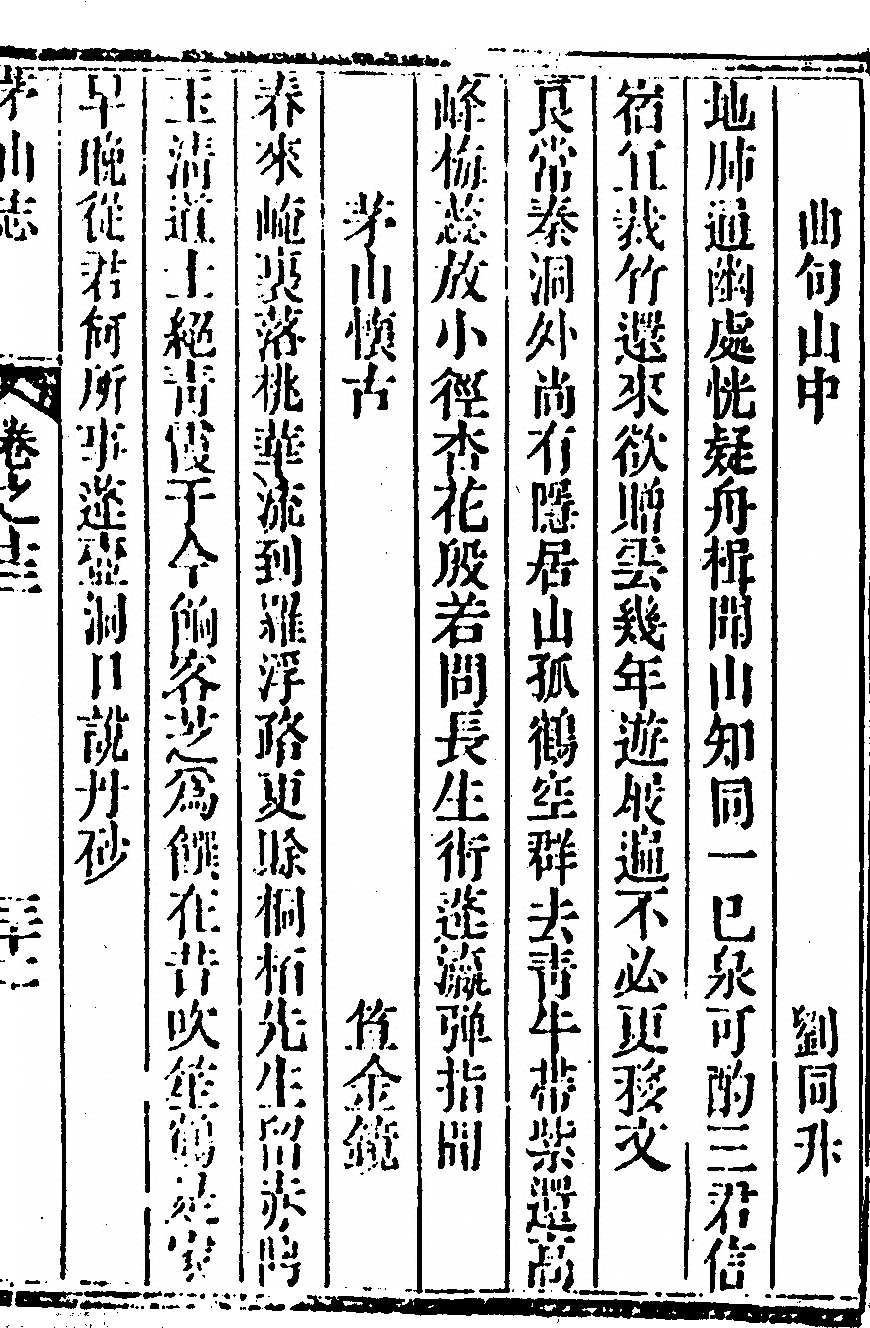 曲句山中 劉同升
地肺通幽處恍疑舟楫開山知同一巳泉可酌三君信
宿宜栽竹還來欲贈雲幾年遊最遍不必更移文
良常秦洞外尚有隱居山孤鶴空群去青牛帶紫還高
峰梅蕊放小徑杏花殷若問長生術蓬瀛彈指間
茅山懷古 笪金鏡
春來崦裏落桃華流到羅浮路更賒桐栢先生留赤舄
玉清道士絕青霞于今餉客芝為饌在昔吹笙鶴是家
早晚從君何所事蓬壺洞口說丹砂
茅山志 卷之十三